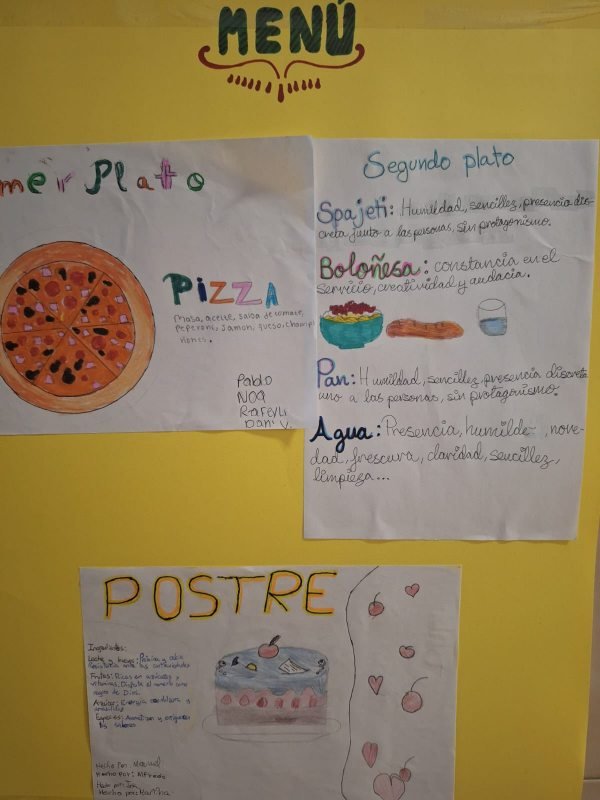 MENÚ
mer Plato
PIZZA
Masa, aceite, salsa de tomate,
Peperoni, Jamon, queso, champi
ñones.
Pablo
NOA
Rafeyli
Dani V.
Segundo plato
Spajeti: Humildad, sencillez, presencia dis-
creta junto a las personas, sin protagonismo.
Boloñesa: constancia en el
servicio, creatividad y audacia.
Pan: Humildad, sencillez, presencia discreta
uno a las personas, sin protagonismo.
Agua: Presencia, humilde, nove-
dad, frescura, claridad, sencillez,
limpieza...
POSTRE
Ingredientes:
Leche y huevo: y
ante las
Frutas: Ricas en azúcares y
vitaminas: el como
de Dios.
Azúcar: Energía y
Especies: Aromatizan y
sabores
Hecho Por: Manuel
Hecho por: Alfredo
Hecho por:
Hecho por: Martina